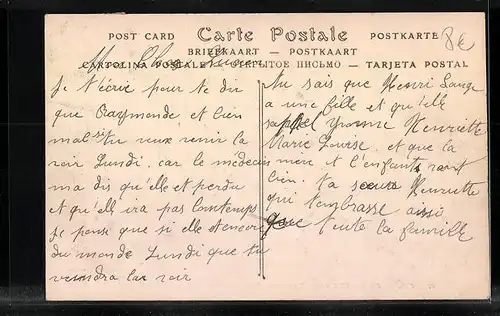 POST CARD Carte Postale POSTKARTE
BRIEFKAART — POSTKAART
CARTOLINA POSTALE ОТКРЫТОЕ ПИСЬМО — TARJETA POSTAL
8€
Ma Chère
Je t'écrie pour te dir
que Raymonde et bien
mal si tu veux venir la
voir Lundi. car le médecin
ma dis qu'elle et perdu
et qu'elle ira pas lomtemps
Je pense que si elle et encore
du monde Lundi que tu
veindra la voir
tu sais que Henri Lange
a une fille et qu'elle
s'appel Yvonne Henriette
Marie Louise. et que la
mère et l'enfants vont
bien. ta sœur Henriette
qui t'embrasse ainsi
que toute la famille